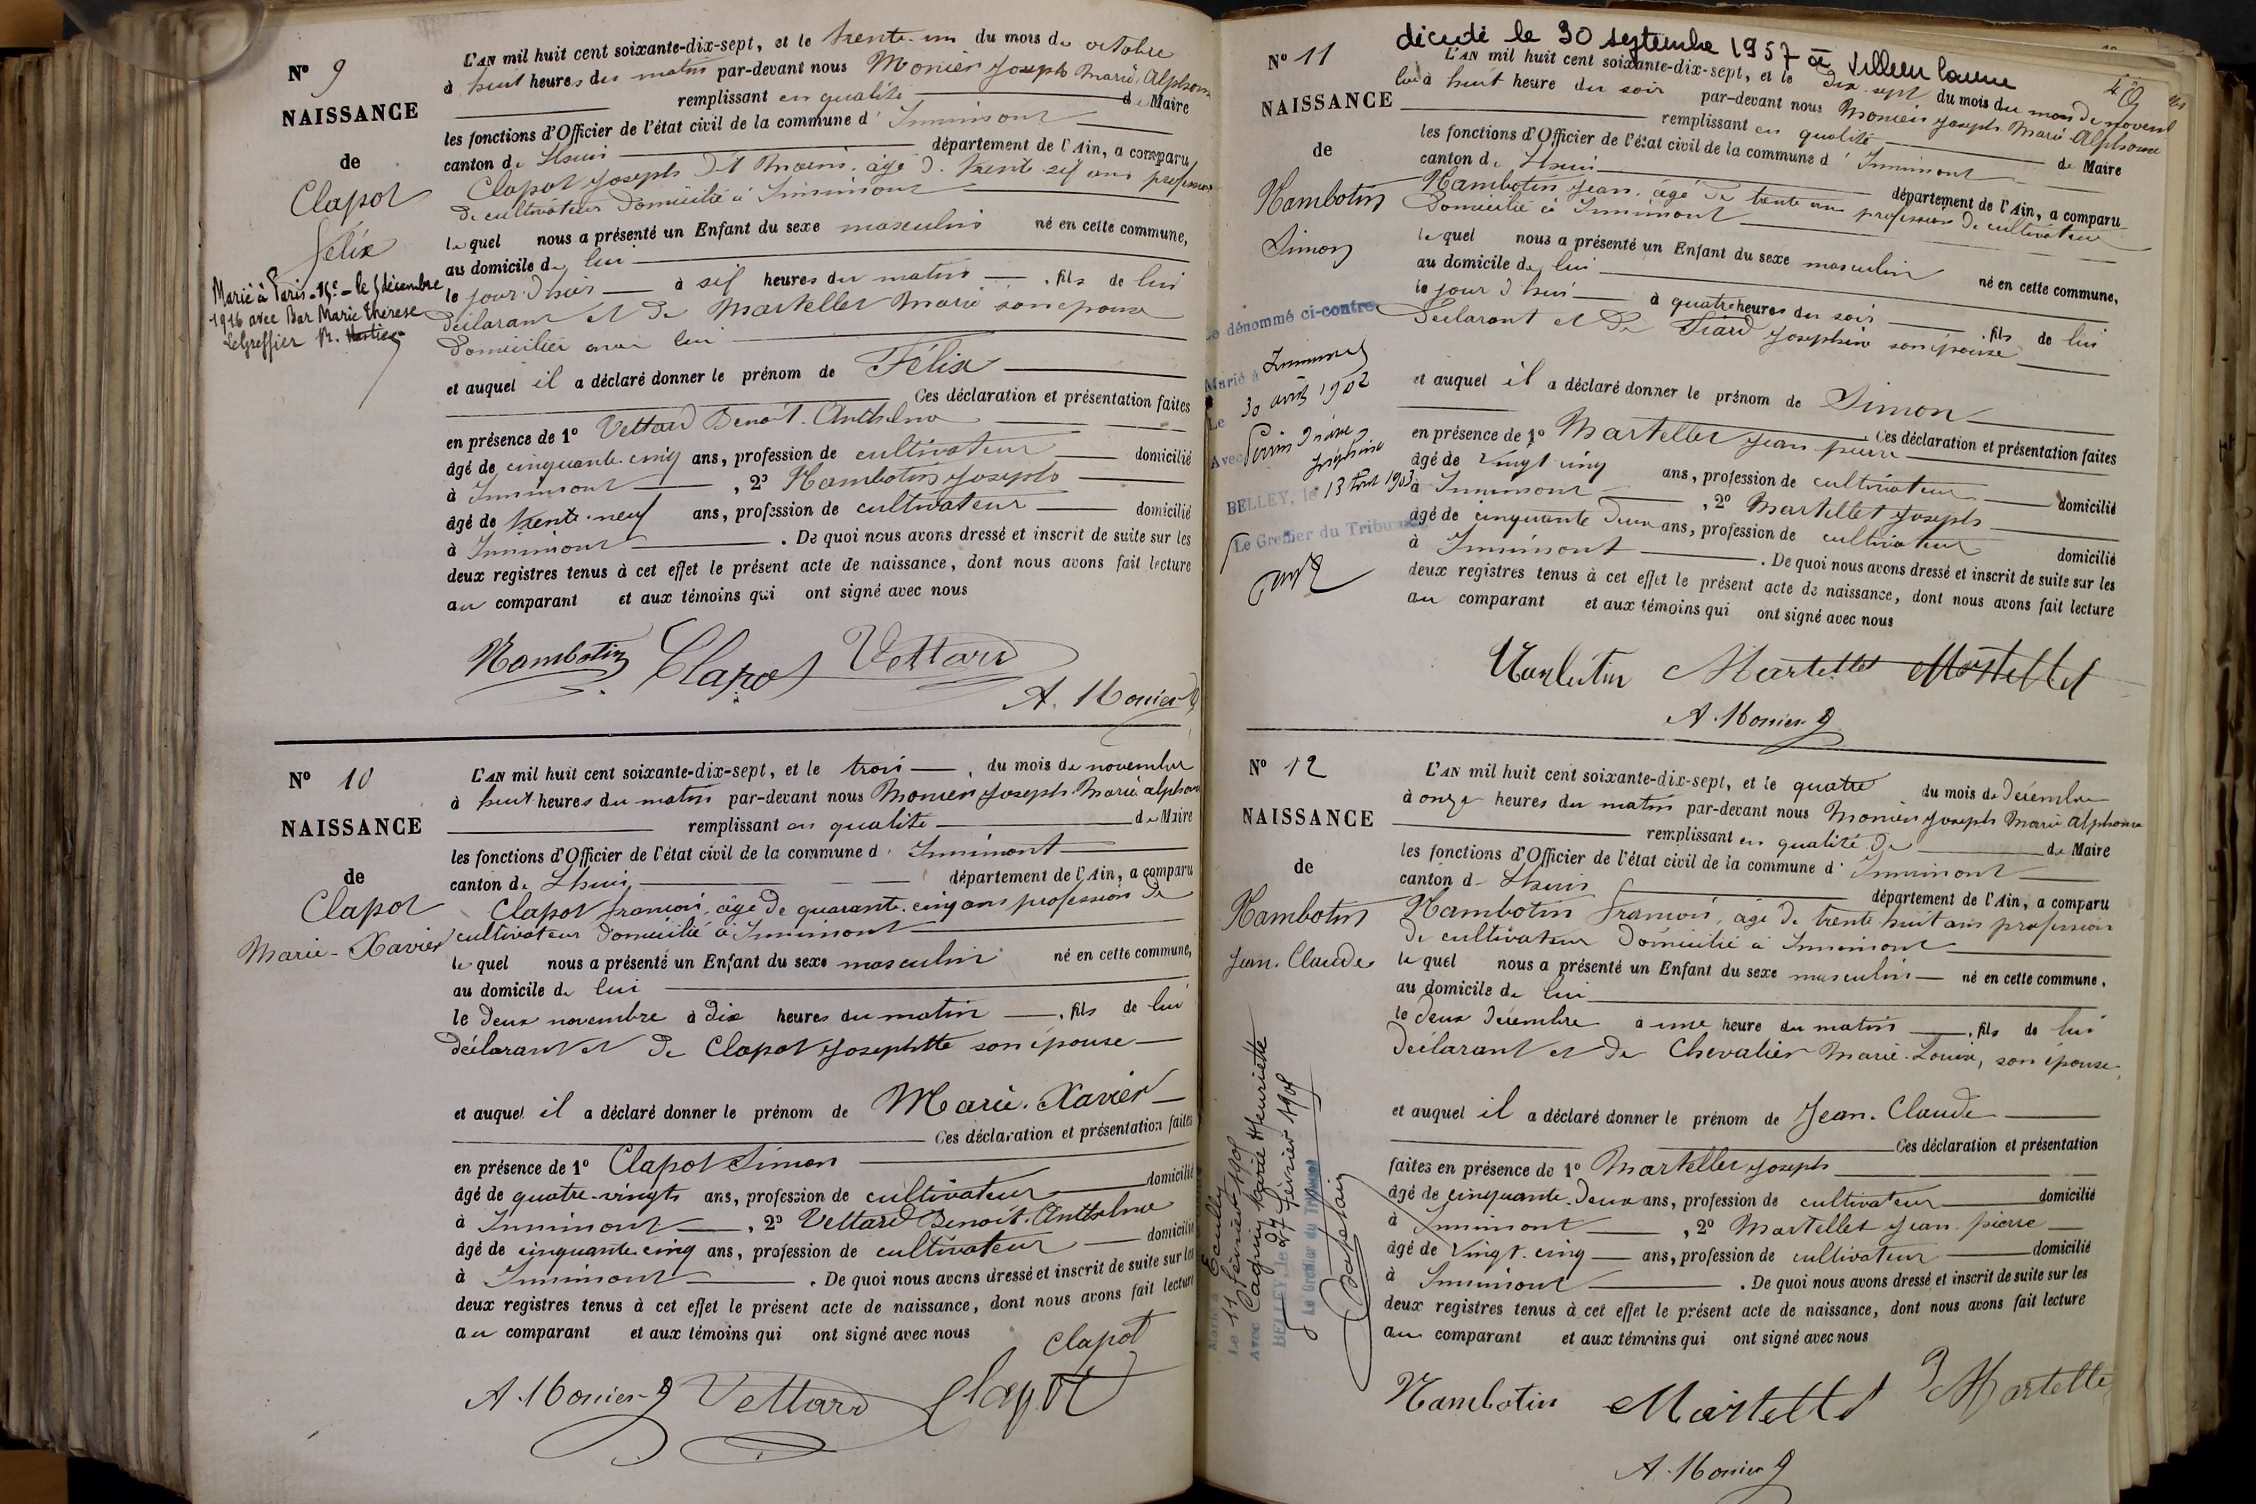 N° 9
NAISSANCE
de
Clapot
Félix
Marié à Paris - 15e - le 5 décembre
1916 avec Bar Marie Thérèse
Le Greffier
L'AN mil huit cent soixante-dix-sept, et le trente-un du mois de octobre
à huit heures du matin par-devant nous Monier Joseph Marie Alphonse
remplissant en qualité de Maire
les fonctions d'Officier de l'état civil de la commune d' Innimont
canton de Lhuis département de l'Ain, a comparu
Clapot Joseph dit Marin, âgé de trente six ans profession
de cultivateur domicilié à Innimont
lequel nous a présenté un Enfant du sexe masculin né en cette commune,
au domicile de lui
le jour d'hier à six heures du matin, fils de lui
déclarant et de Martellet Marie son épouse
domiciliée avec lui
et auquel il a déclaré donner le prénom de Félix
Ces déclaration et présentation faites
en présence de 1° Vettard Benoît Anthelme
âgé de cinquante cinq ans, profession de cultivateur domicilié
à Innimont, 2° Nambotin Joseph
âgé de trente-neuf ans, profession de cultivateur domicilié
à Innimont. De quoi nous avons dressé et inscrit de suite sur les
deux registres tenus à cet effet le présent acte de naissance, dont nous avons fait lecture
au comparant et aux témoins qui ont signé avec nous
Nambotin Clapot Vettard
A. Monier
N° 10
NAISSANCE
de
Clapot
Marie-Xavier
L'AN mil huit cent soixante-dix-sept, et le trois, du mois de novembre
à huit heures du matin par-devant nous Monier Joseph Marie alphonse
remplissant en qualité de Maire
les fonctions d'Officier de l'état civil de la commune d' Innimont
canton de Lhuis département de l'Ain, a comparu
Clapot françois, âgé de quarante-cinq ans profession de
cultivateur domicilié à Innimont
lequel nous a présenté un Enfant du sexe masculin né en cette commune,
au domicile de lui
le deux novembre à dix heures du matin, fils de lui
déclarant et de Clapot Josephtte son épouse
et auquel il a déclaré donner le prénom de Marie-Xavier
Ces déclaration et présentation faites
en présence de 1° Clapot Simon
âgé de quatre-vingts ans, profession de cultivateur domicilié
à Innimont, 2° Vettard Benoît-Anthelme
âgé de cinquante cinq ans, profession de cultivateur domicilié
à Innimont. De quoi nous avons dressé et inscrit de suite sur les
deux registres tenus à cet effet le présent acte de naissance, dont nous avons fait lecture
au comparant et aux témoins qui ont signé avec nous
Clapot
A. Monier Vettard Clapot
décédé le 30 septembre 1957 à
N° 11
NAISSANCE
de
Nambotin
Simon
Le dénommé ci-contre
Marié à Innimont
Le 30 avril 1902
Avec Perrin
Joséphine
BELLEY, le 13 1903
Le Greffier du Tribunal
L'AN mil huit cent soixante-dix-sept, et le dix-sept du mois du mois de novembre
à huit heure du soir par-devant nous Monier Joseph Marie Alphonse
remplissant en qualité de Maire
les fonctions d'Officier de l'état civil de la commune d' Innimont
canton de Lhuis département de l'Ain, a comparu
Nambotin Jean, âgé de trente ans profession de cultivateur
Domicilié à Innimont
lequel nous a présenté un Enfant du sexe masculin né en cette commune,
au domicile de lui
le jour d'hui à quatre heures du soir, fils de lui
déclarant et de Josephine son épouse
et auquel il a déclaré donner le prénom de Simon
Ces déclaration et présentation faites
en présence de 1° Martellet Jean pierre
âgé de vingt cinq ans, profession de cultivateur domicilié
à Innimont, 2° Martellet Joseph
âgé de cinquante deux ans, profession de cultivateur domicilié
à Innimont. De quoi nous avons dressé et inscrit de suite sur les
deux registres tenus à cet effet le présent acte de naissance, dont nous avons fait lecture
au comparant et aux témoins qui ont signé avec nous
Nambotin Martellet Martellet
A. Monier
N° 12
NAISSANCE
de
Nambotin
Jean-Claude
Marié à Ecully
Le 11 février 1905
Avec Marie Henriette
BELLEY, le 27 février 1905
Le Greffier du Tribunal
L'AN mil huit cent soixante-dix-sept, et le quatre du mois de décembre
à onze heures du matin par-devant nous Monier Joseph Marie Alphonse
remplissant en qualité de de Maire
les fonctions d'Officier de l'état civil de la commune d' Innimont
canton de Lhuis département de l'Ain, a comparu
Nambotin françois, âgé de trente huit ans profession
de cultivateur domicilié à Innimont
lequel nous a présenté un Enfant du sexe masculin né en cette commune,
au domicile de lui
le deux décembre à une heure du matin, fils de lui
déclarant et de Chevalier Marie-Louise, son épouse,
et auquel il a déclaré donner le prénom de Jean-Claude
Ces déclaration et présentation
faites en présence de 1° Martellet Joseph
âgé de cinquante-deux ans, profession de cultivateur domicilié
à Innimont, 2° Martellet Jean-pierre
âgé de vingt-cinq ans, profession de cultivateur domicilié
à Innimont. De quoi nous avons dressé et inscrit de suite sur les
deux registres tenus à cet effet le présent acte de naissance, dont nous avons fait lecture
au comparant et aux témoins qui ont signé avec nous
Nambotin Martellet J Martellet
A. Monier